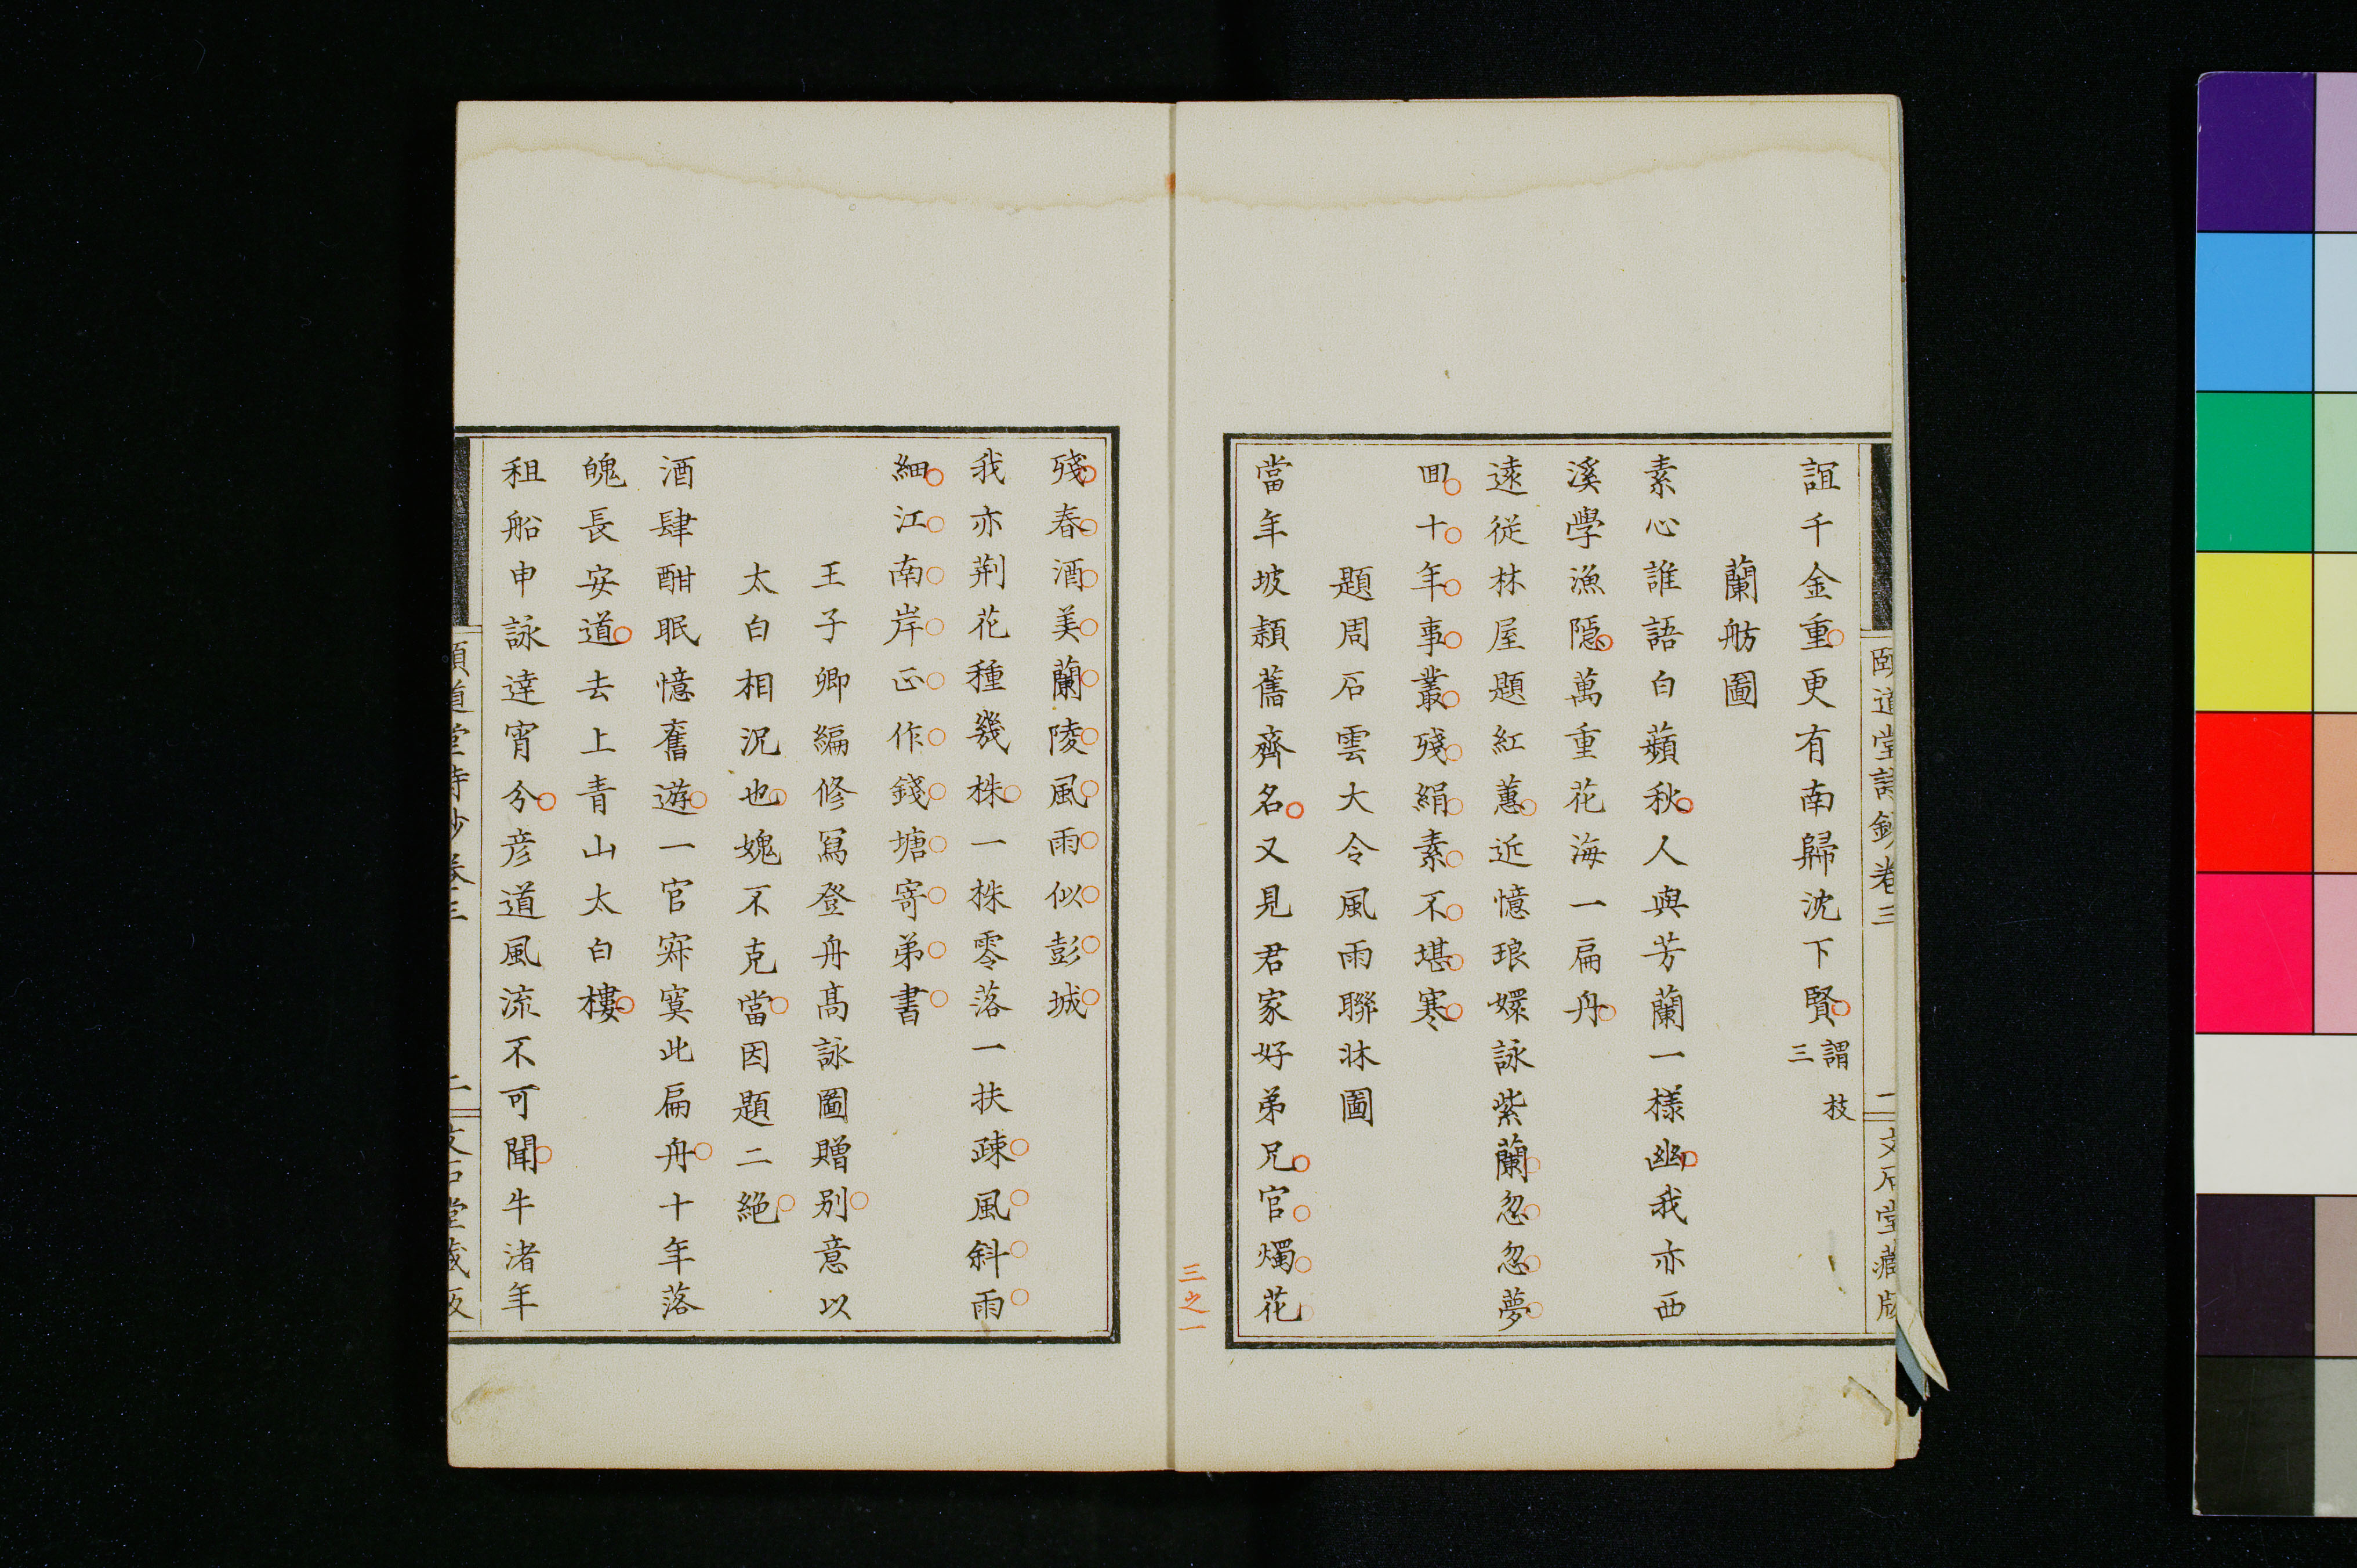 頤道堂詩鈔卷三 一 文石堂藏版
誼千金重更有南歸沈下賢謂枝三
蘭舫圖
素心誰語白蘋秋人與芳蘭一樣幽我亦西
溪學漁隱萬重花海一扁舟
遠從林屋題紅蕙近憶琅嬛詠紫蘭忽忽夢
囬十年事叢殘絹素不堪寒
題周石雲大令風雨聯牀圖
當年坡潁舊齊名又見君家好弟兄官燭花
三之一
殘春酒美蘭陵風雨似彭城
我亦荆花種幾株一株零落一扶疎風斜雨
細江南岸正作錢塘寄弟書
王子卿編修寫登舟高詠圖贈别意以
太白相況也媿不克當因題二絶
酒肆酣眠憶舊遊一官寂寞此扁舟十年落
魄長安道去上青山太白樓
租船申詠達宵分彦道風流不可聞牛渚年
頤道堂詩鈔卷三 二 文石堂藏版